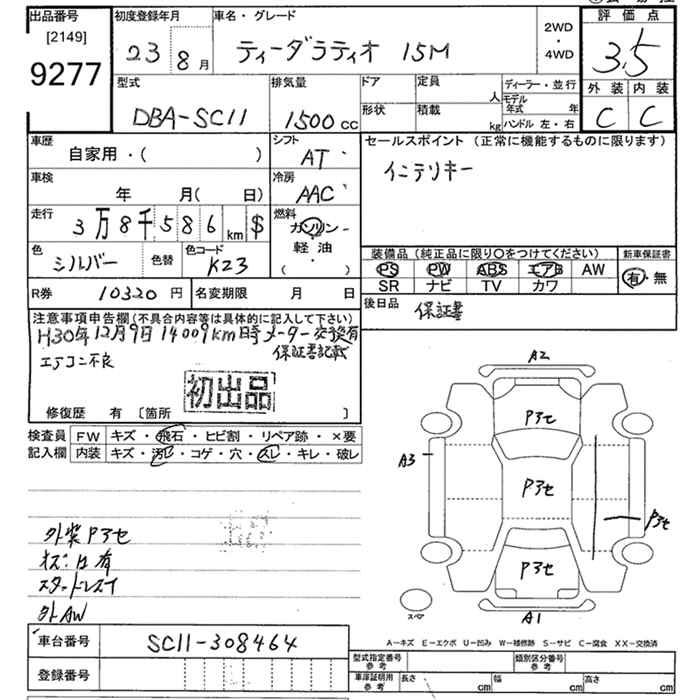 出品番号 初度登録年月 車名・グレード 評価点
[2149] 2WD
23 8月 ティーダラティオ 15M ・ 3.5
9277 4WD
型式 排気量 ドア 定員 ディーラー・並行 外装 内装
人 モデル年式 年
DBA-SC11 1500cc 形状 積載 kg ハンドル 左・右 C C
車歴 自家用・( ) シフト AT セールスポイント (正常に機能するものに限ります)
車検 年 月( 日) 冷房 AAC インテリキー
走行 3万8千586km $ 燃料 ガソリン
軽油
( )
色 シルバー 色替 色コード K23 装備品 (純正品に限り〇をつけてください) 新車保証書
PS PW ABS エアB AW 有・無
R券 10320円 名変期限 月 日 SR ナビ TV カワ
後日品 保証書
注意事項申告欄(不具合内容等は具体的に記入して下さい)
H30年12月9日14009km時メーター交換有
保証書記載
エアコン不良
初出品
修復歴 有 〔箇所 〕
検査員 FW キズ・飛石・ヒビ割・リペア跡・×要
記入欄 内装 キズ・汚レ・コゲ・穴・スレ・キレ・破レ
A2
Pアセ
A3
Pアセ
Pアセ
Pアセ
スペア
A1
外装Pアセ
キズ凹有
スタッドレスT
外AW
A-キズ E-エクボ U-凹み W-補修跡 S-サビ C-腐食 XX-交換済
車台番号 SC11-308464
登録番号
型式指定番号 参考 類別区分番号 参考
車庫証明用 参考 長さ cm 幅 cm 高さ cm